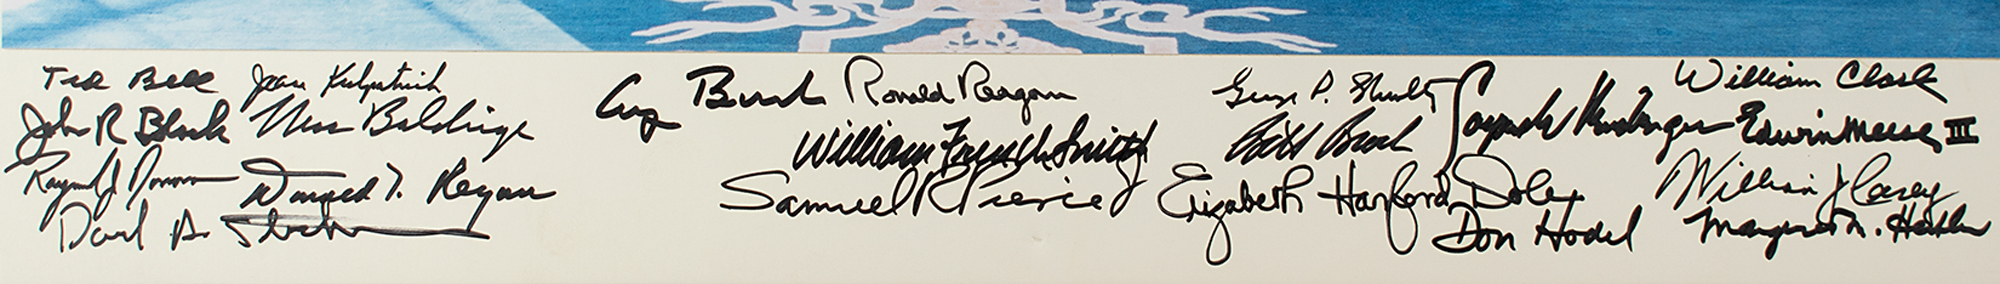 Ted Bell Jeane Kirkpatrick Cap Bush Ronald Reagan George P. Shultz William Clark
John R Block Mac Baldrige William French Smith Bill Brock Caspar W Weinberger Edwin Meese III
Raymond J Donovan Donald T. Regan Samuel R Pierce J Elizabeth Hanford Dole William J Casey
David A. Stockman Don Hodel Margaret M. Heckler